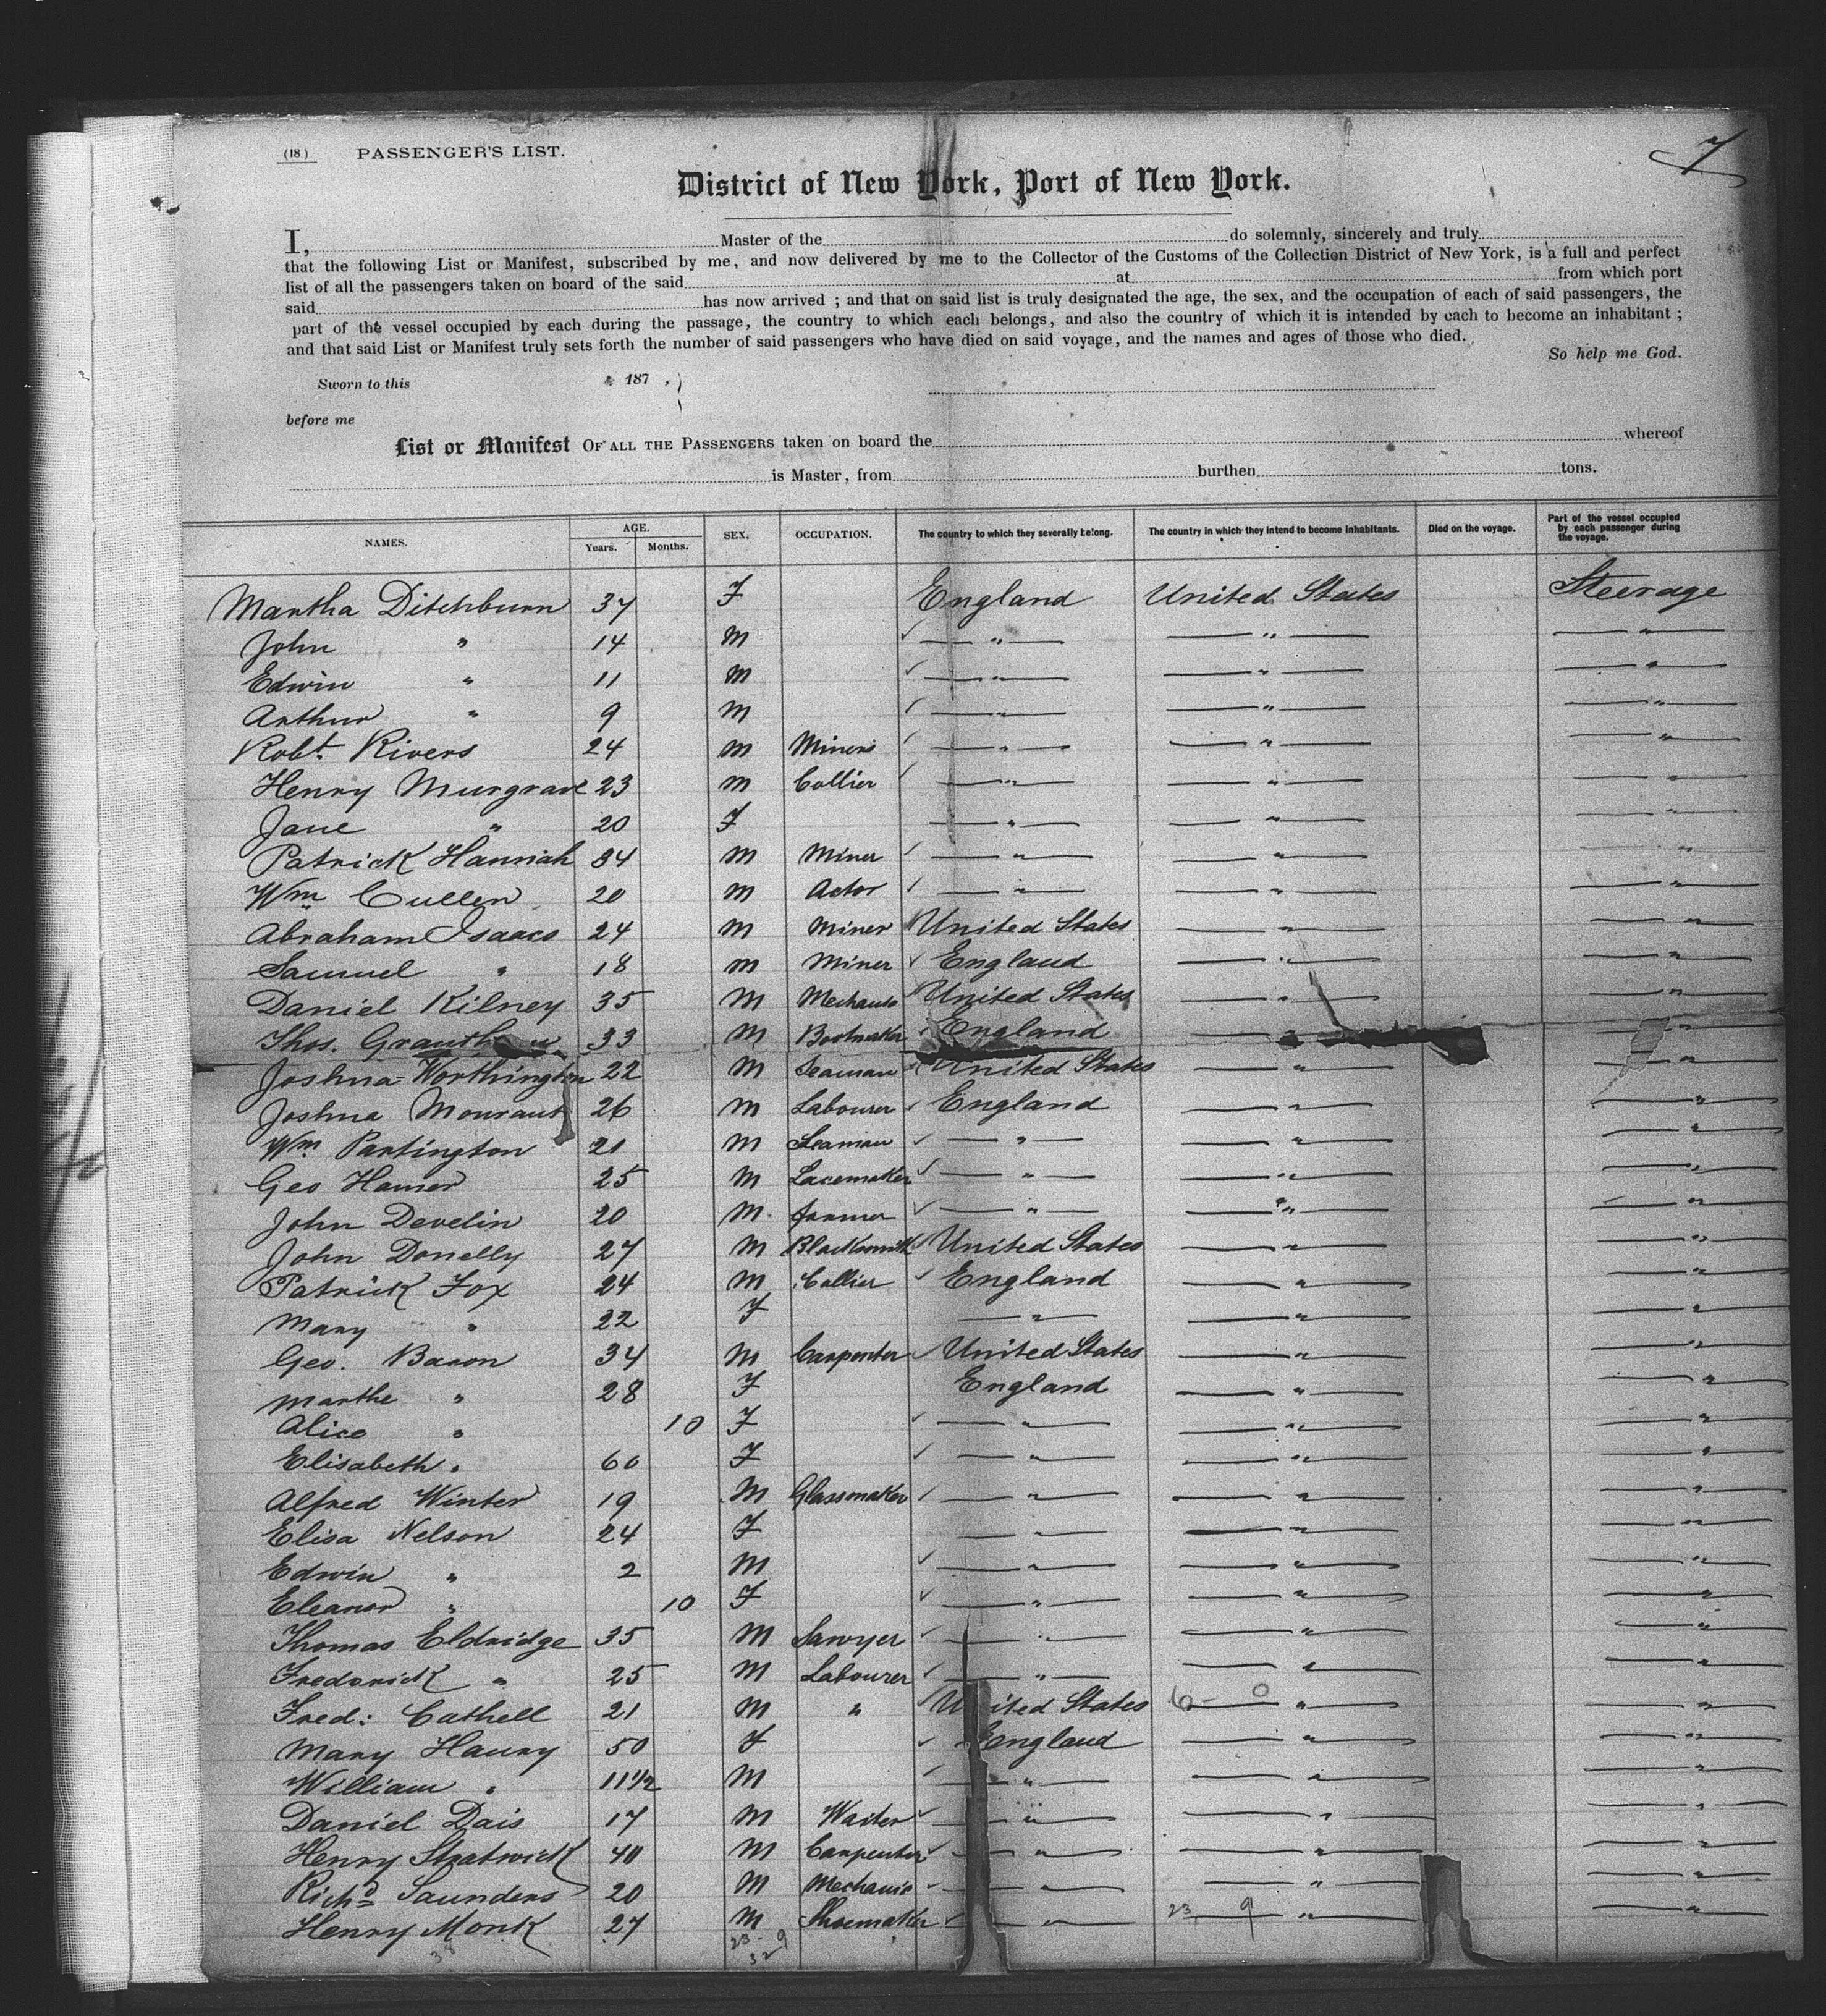 (18) PASSENGER'S LIST.
7
District of New York, Port of New York.
I, Master of the do solemnly, sincerely and truly
that the following List or Manifest, subscribed by me, and now delivered by me to the Collector of the Customs of the Collection District of New York, is a full and perfect
list of all the passengers taken on board of the said at from which port
said has now arrived ; and that on said list is truly designated the age, the sex, and the occupation of each of said passengers, the
part of the vessel occupied by each during the passage, the country to which each belongs, and also the country of which it is intended by each to become an inhabitant ;
and that said List or Manifest truly sets forth the number of said passengers who have died on said voyage, and the names and ages of those who died.
So help me God.
Sworn to this 187 ,
before me
List or Manifest OF ALL THE PASSENGERS taken on board the whereof
is Master, from burthen tons.
NAMES. AGE. Years. Months. SEX. OCCUPATION. The country to which they severally belong. The country in which they intend to become inhabitants. Died on the voyage. Part of the vessel occupied by each passenger during the voyage.
Martha Ditchburn 37 F England United States Steerage
John " 14 M " " "
Edwin " 11 M " " "
Arthur " 9 M " " "
Robt. Rivers 24 M Miners " " "
Henry Murgrave 23 M Collier " " "
Jane " 20 F " " "
Patrick Hannah 34 M Miner " " "
Wm Cullen 20 M Actor " " "
Abraham Isaacs 24 M Miner United States " "
Samuel " 18 M Miner England " "
Daniel Kilney 35 M United States " "
Thos. 33 M Bootmaker England " "
Joshua Worthington 22 M Seaman United States " "
Joshua Mourant 26 M Labourer England " "
Wm Partington 21 M Seaman " " "
Geo Hamer 25 M Lacemaker " " "
John Develin 20 M farmer " " "
John Donelly 27 M Blacksmith United States " "
Patrick Fox 24 M Collier England " "
Mary " 22 F " " "
Geo. Baron 34 M Carpenter United States " "
Marthe " 28 F England " "
Alice " 10 F " " "
Elisabeth " 60 F " " "
Alfred Winter 19 M Glassmaker " " "
Elisa Nelson 24 F " " "
Edwin " 2 M " " "
Eleanor " 10 F " " "
Thomas Eldridge 35 M Sawyer " " "
Frederick " 25 M Labourer " " "
Fred: Cathell 21 M " United States 6 - 0 " "
Mary Haury 50 F England " "
William " 11 1/2 M " " "
Daniel Dais 17 M Waiter " " "
Henry Stratwick 40 M Carpenter " " "
Richd Saunders 20 M Mechanic " " "
Henry Monk 27 M Shoemaker " 23 9 " "
23 - 9
32